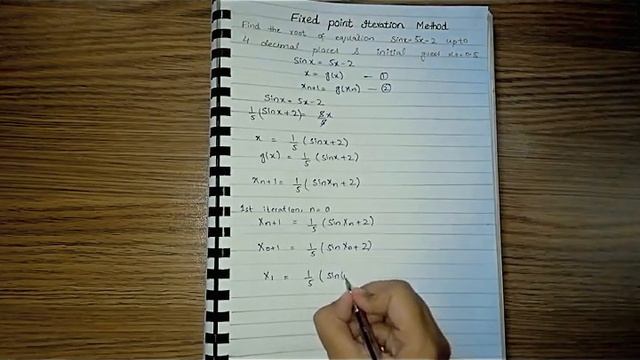 Fixed point Iteration Method
Find the root of equation sinx=5x-2 upto
4 decimal places & initial guess x₀=0.5
sinx = 5x-2
x = g(x) — ①
xn+1 = g(xn) — ②
sinx = 5x-2
1/5 (sinx+2) = 5x/5
x = 1/5 (sinx+2)
g(x) = 1/5 (sinx+2)
xn+1 = 1/5 (sinxn+2)
1st iteration, n=0
xn+1 = 1/5 (sinxn+2)
x0+1 = 1/5 (sinx0+2)
x1 = 1/5 (sin(